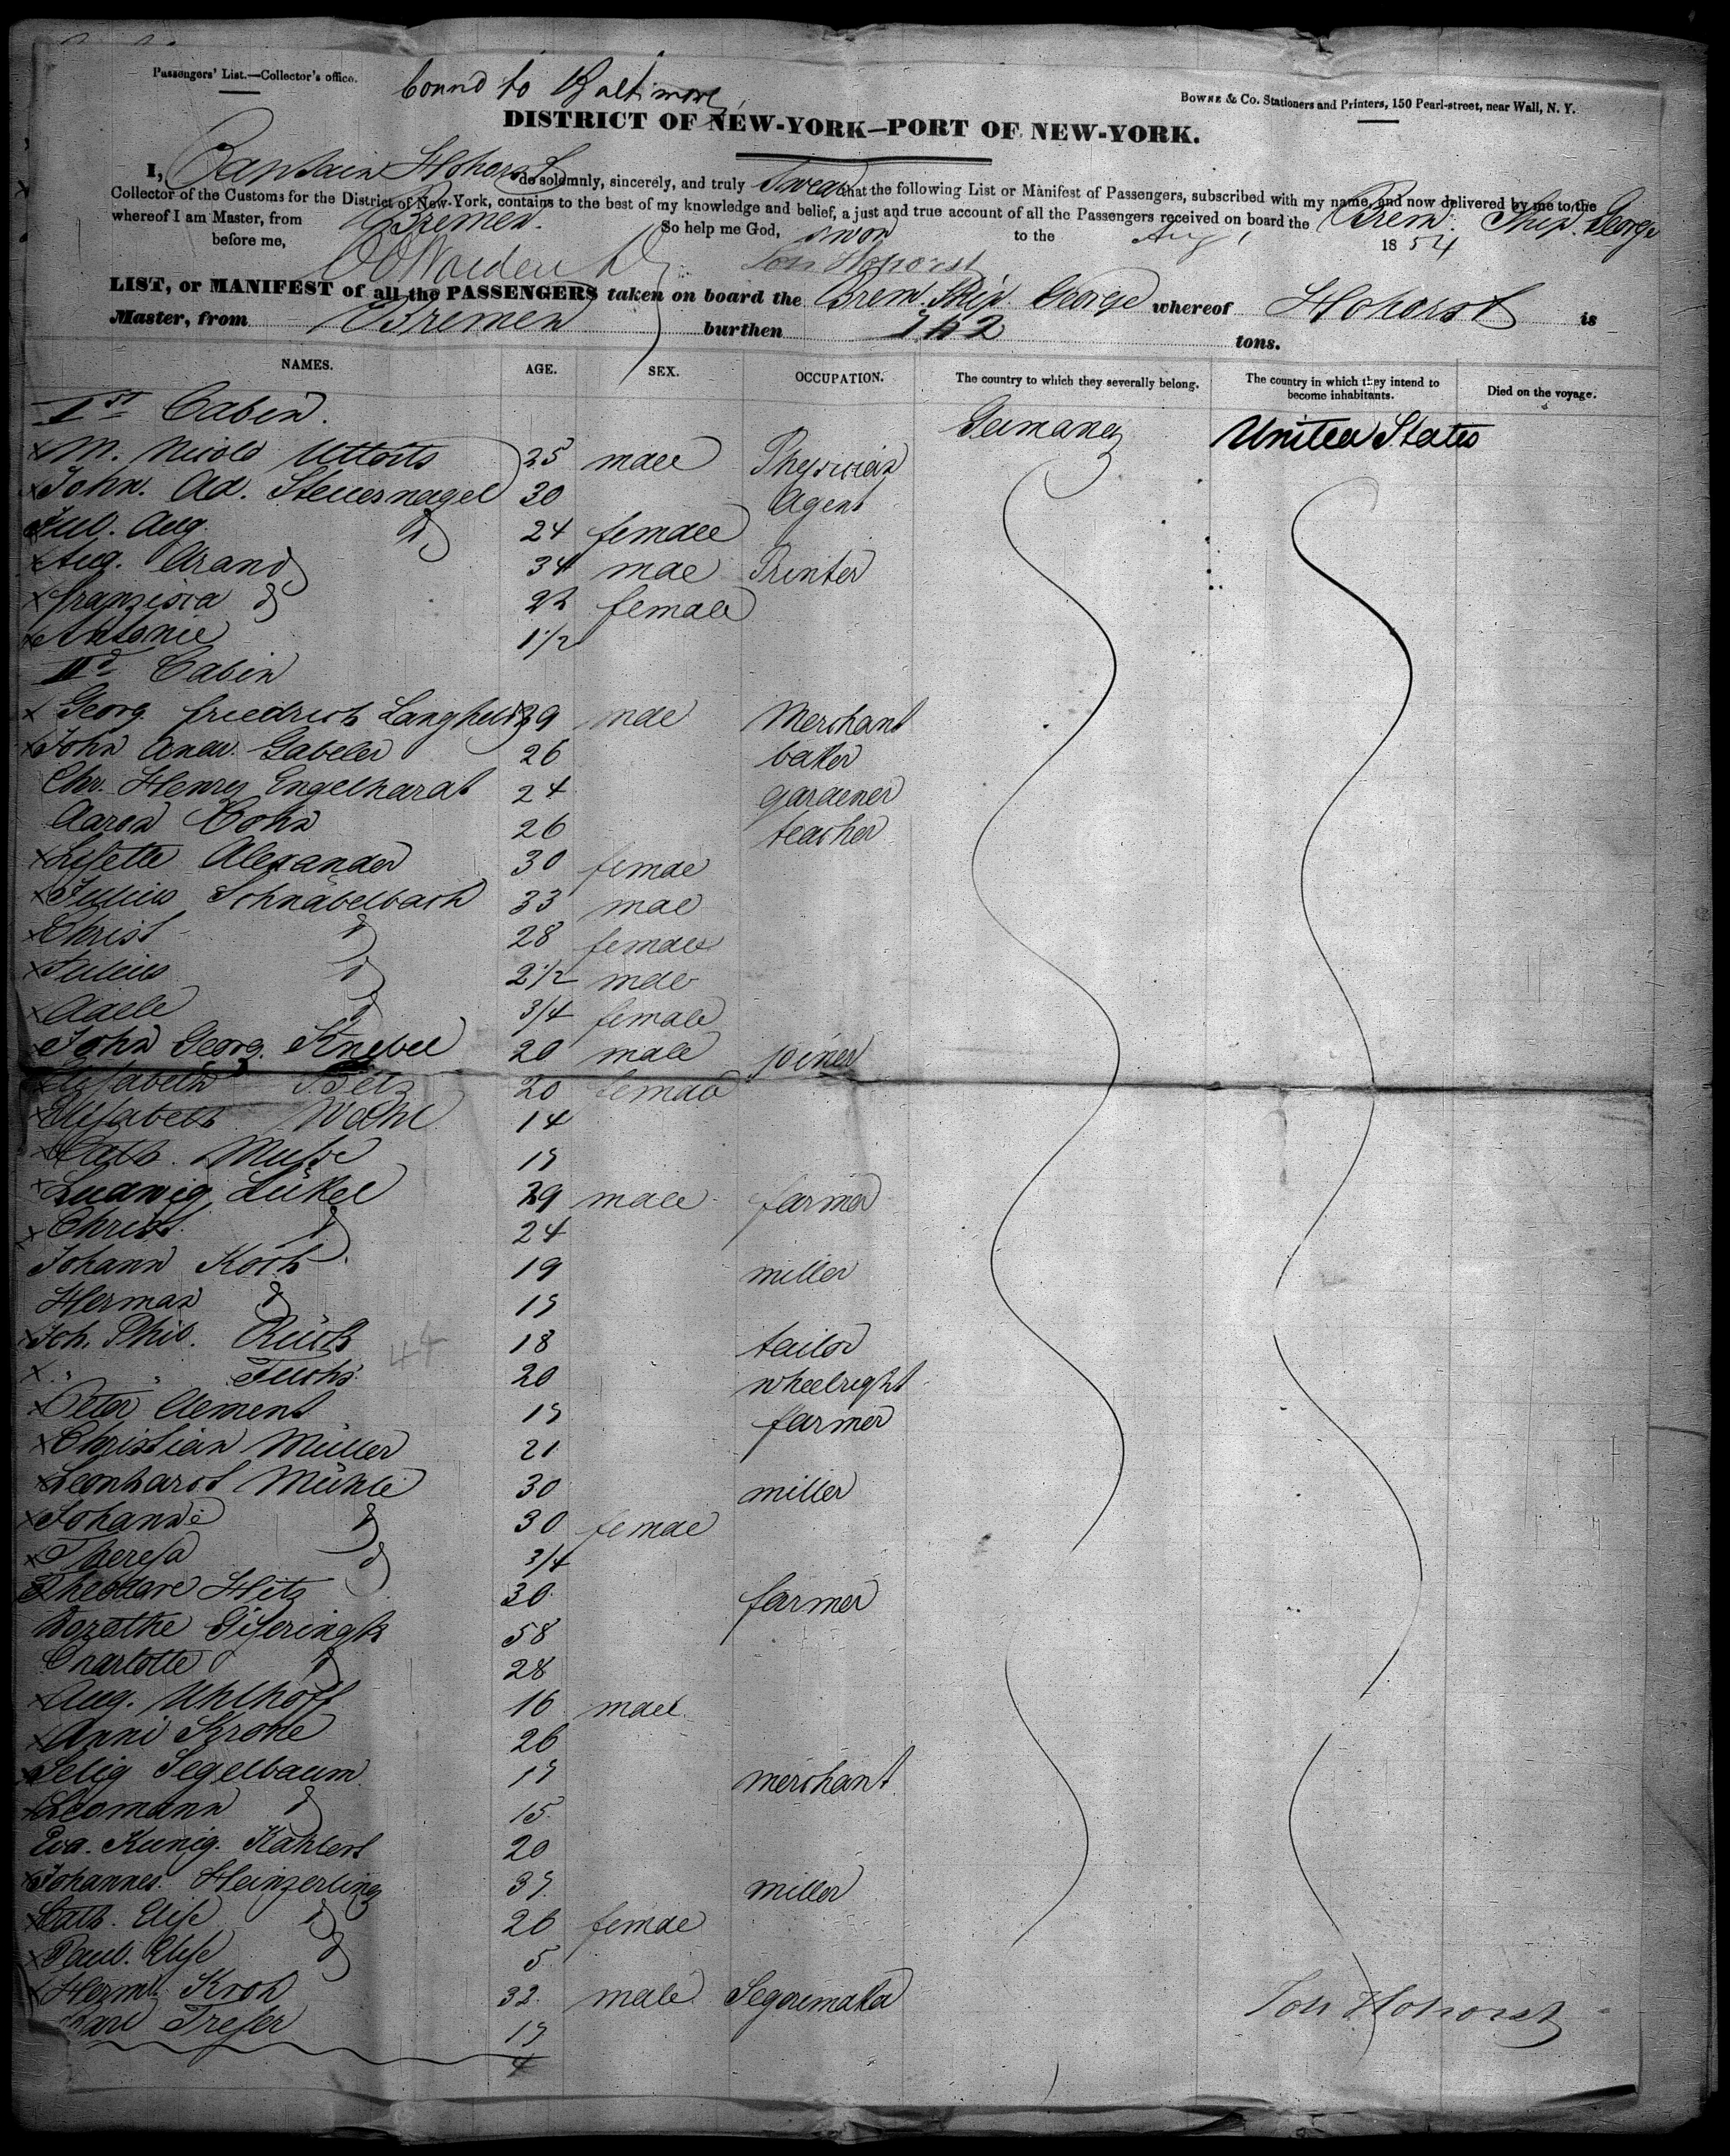 Passengers' List.—Collector's office.
bound to Baltimore
BOWNE & Co. Stationers and Printers, 150 Pearl-street, near Wall, N. Y.
DISTRICT OF NEW-YORK—PORT OF NEW-YORK.
I, Captain Hohorst do solemnly, sincerely, and truly Swear that the following List or Manifest of Passengers, subscribed with my name, and now delivered by me to the
Collector of the Customs for the District of New-York, contains to the best of my knowledge and belief, a just and true account of all the Passengers received on board the Brem. Ship George
whereof I am Master, from Bremen. So help me God,
before me, Swon to the Aug 1 1854
Joh Hohorst
LIST, or MANIFEST of all the PASSENGERS taken on board the Brem. Ship George whereof Hohorst is
Master, from Bremen burthen tons.
NAMES. AGE. SEX. OCCUPATION. The country to which they severally belong. The country in which they intend to become inhabitants. Died on the voyage.
Ist Cabin. Germany United States
M. 25 male Physician
John. Ad. Steuernagel 30 Agent
Jul. Aug. d 24 female
Aug. Arand 34 mae Printer
Franzisca d female
Antonie 1 1/2
IId Cabin
Georg. Friedrich 39 male Merchant
John Andr. Gabeler 26 baker
Chr. Henry Engelhardt 24 gardener
Aaron Cohn 26 teacher
Lisette Alexander 30 femae
Julius Schnabelbach 33 mae
Christ d 28 female
Julius d 2 1/2 male
Adele d 3/4 female
John Georg. Knebel 20 male joiner
Elisabeth Betz 20 female
Elisabeth Wahl 14
Cath. 19
Ludwig Lükel 29 male farmer
Christ. d 24
Johann Koch 19 miller
Herman d 19
Joh. Phil. Rück 18 tailor
" " Fuchs 20 wheelright
Peter Clement 19 farmer
Christian Müller 21
Leonhardt Mühle 30 miller
Johanne d 30 femae
Theresa d 3/4
Theodore Hitz 30 farmer
Dorothe 58
Charlotte d 28
Aug. Uhlhoff 16 mael
Anni Krohe 26
Selig Segelbaum 19 merchant
d 15
Eva. Kunig. Kahlert 20
Johannes Heinzerling 37 miller
Cath. Elise d 26 femae
Paul. Elise d 5
Herm. Kroh 32 male Segaremaker
Karl Treser 19
Joh Hohorst